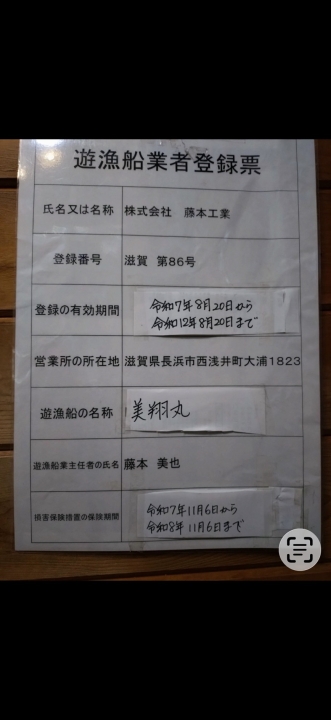 遊漁船業者登録票
氏名又は名称 株式会社 藤本工業
登録番号 滋賀 第86号
登録の有効期間 令和7年8月20日から
令和12年8月20日まで
営業所の所在地 滋賀県長浜市西浅井町大浦1823
遊漁船の名称 美翔丸
遊漁船業主任者の氏名 藤本 美也
損害保険措置の保険期間 令和7年11月6日から
令和8年11月6日まで